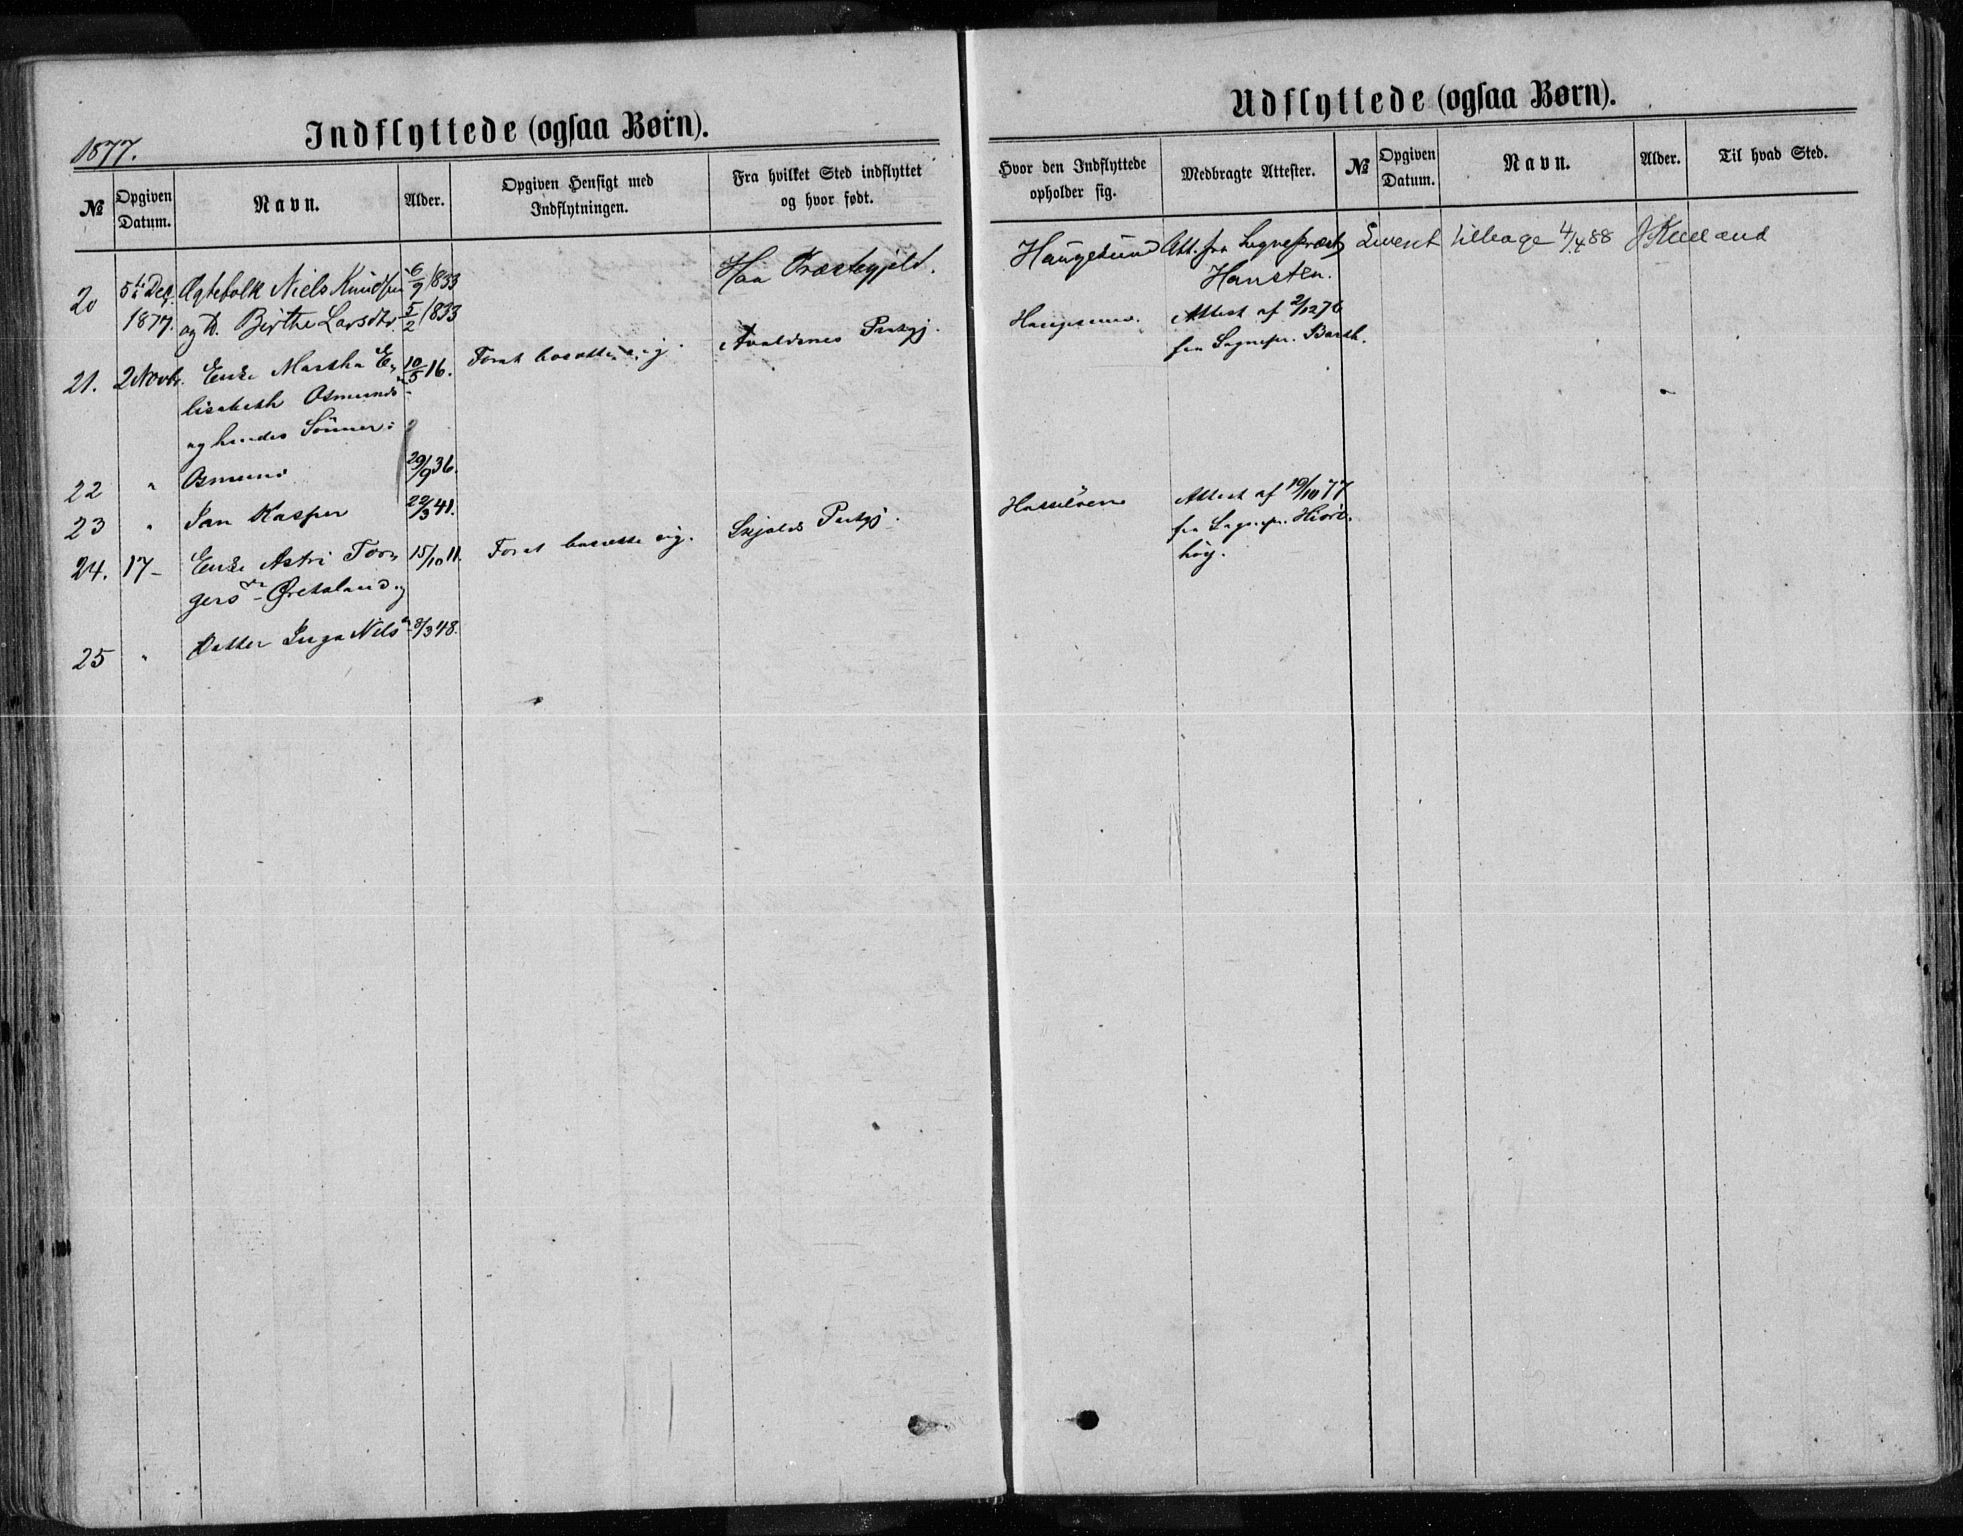 1877.
Indflyttede (ogsaa Børn).
№
Opgiven Datum.
Navn.
Alder.
Opgiven Hensigt med Indflytningen.
Fra hvilket Sted indflyttet og hvor født.
20 5te Dec. Ægtefolk Niels Knudsen 6/9 1833 Haa Præstegjeld.
1877. og H. Berthe Larsdtr. 5/2 1833
21. 2 Novb. Enke Martha E- 10/5 16. For at bosætte sig. Avaldsnes Prstgj.
lisabeth Osmunds
og hendes Sönner:
22 " Osmund 29/9 36.
23 " Jan Kasper 22/3 41.
24. 17 - Enke Astri Tor- 15/10 11. For at bosætte sig. Skjolds Prstgj.
gers - og
25 " Datter Inga Nils 8/3 48.
Udflyttede (ogsaa Børn).
Hvor den Indflyttede opholder sig.
Medbragte Attester.
№
Opgiven Datum.
Navn.
Alder.
Til hvad Sted.
Haugesund Att. fra Sognepræst 4/4 88 J Kielland
Hansten.
Haugesund. Attest af 2/12 76
fra Sognepr. Barth.
Hasselöen Attest af 19/10 77
fra Sognepr. Hiort-
höy.